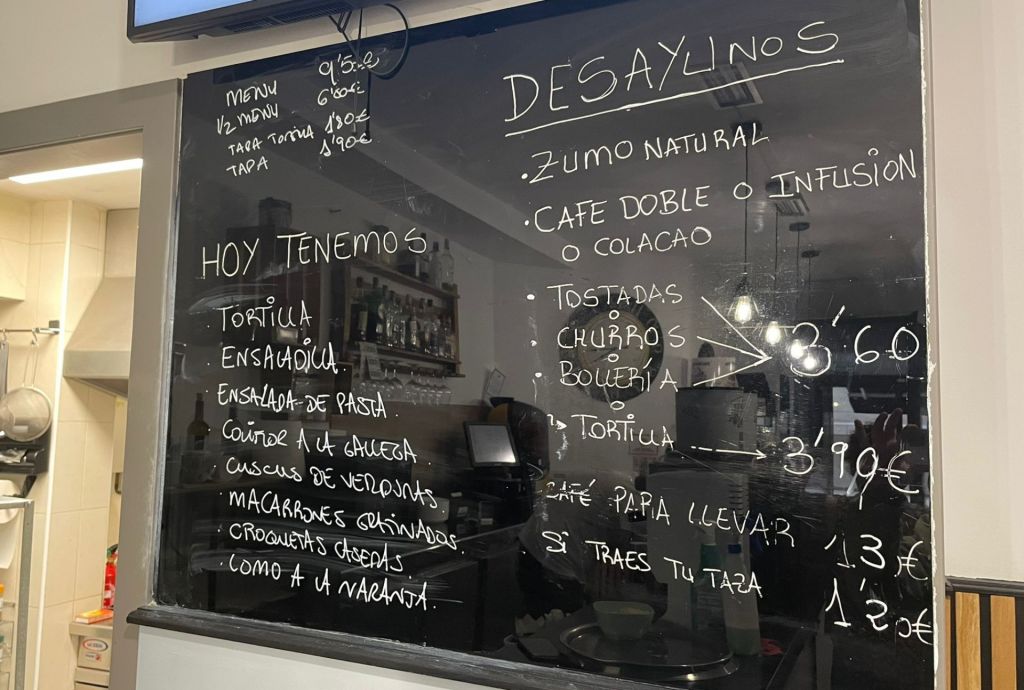 MENU 9'50€
1/2 MENU 6'60€
TAPA TORTILLA 1'80€
TAPA 1'90€
HOY TENEMOS
· TORTILLA
· ENSALADILLA.
· ENSALADA DE PASTA.
· A LA GALLEGA.
· CUSCUS DE VERDURAS.
· MACARRONES GRATINADOS.
· CROQUETAS CASERAS.
· LOMO A LA NARANJA.
DESAYUNOS
· ZUMO NATURAL
· CAFE DOBLE O INFUSION
O COLACAO
· TOSTADAS
O
· CHURROS 3'60
O
· BOLLERIA
O
TORTILLA 3'90€
CAFÉ PARA LLEVAR 1'3 €
SI TRAES TU TAZA 1'20€